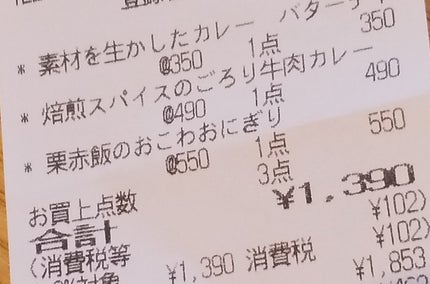 * 素材を生かしたカレー バターチ
@350 1点 350
* 焙煎スパイスのごろり牛肉カレー
@490 1点 490
* 栗赤飯のおこわおにぎり
@550 1点 550
お買上点数 3点
合計 ¥1,390
(消費税等 ¥102)
対象 ¥1,390 消費税 ¥102)
¥1,853